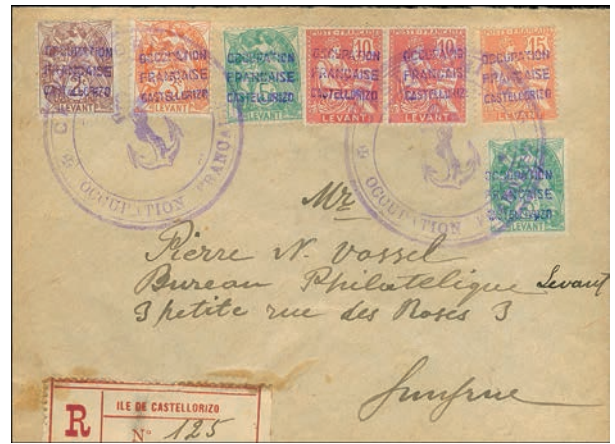 OCCUPATION FRANÇAISE CASTELLORIZO LEVANT
OCCUPATION FRANÇAISE CASTELLORIZO LEVANT
OCCUPATION FRANÇAISE CASTELLORIZO 5 LEVANT
POSTE FRANÇAISE 10 OCCUPATION FRANÇAISE CASTELLORIZO LEVANT
POSTE FRANÇAISE 10 OCCUPATION FRANÇAISE CASTELLORIZO LEVANT
15 OCCUPATION FRANÇAISE CASTELLORIZO LEVANT
OCCUPATION FRANÇAISE CASTELLORIZO 5 LEVANT
OCCUPATION FRANÇAISE
OCCUPATION
Mr
Pierre N. Vassel
Bureau Philatelique Levant
3 petite rue des Roses 3
Smyrne
R
ILE DE CASTELLORIZO
N° 125